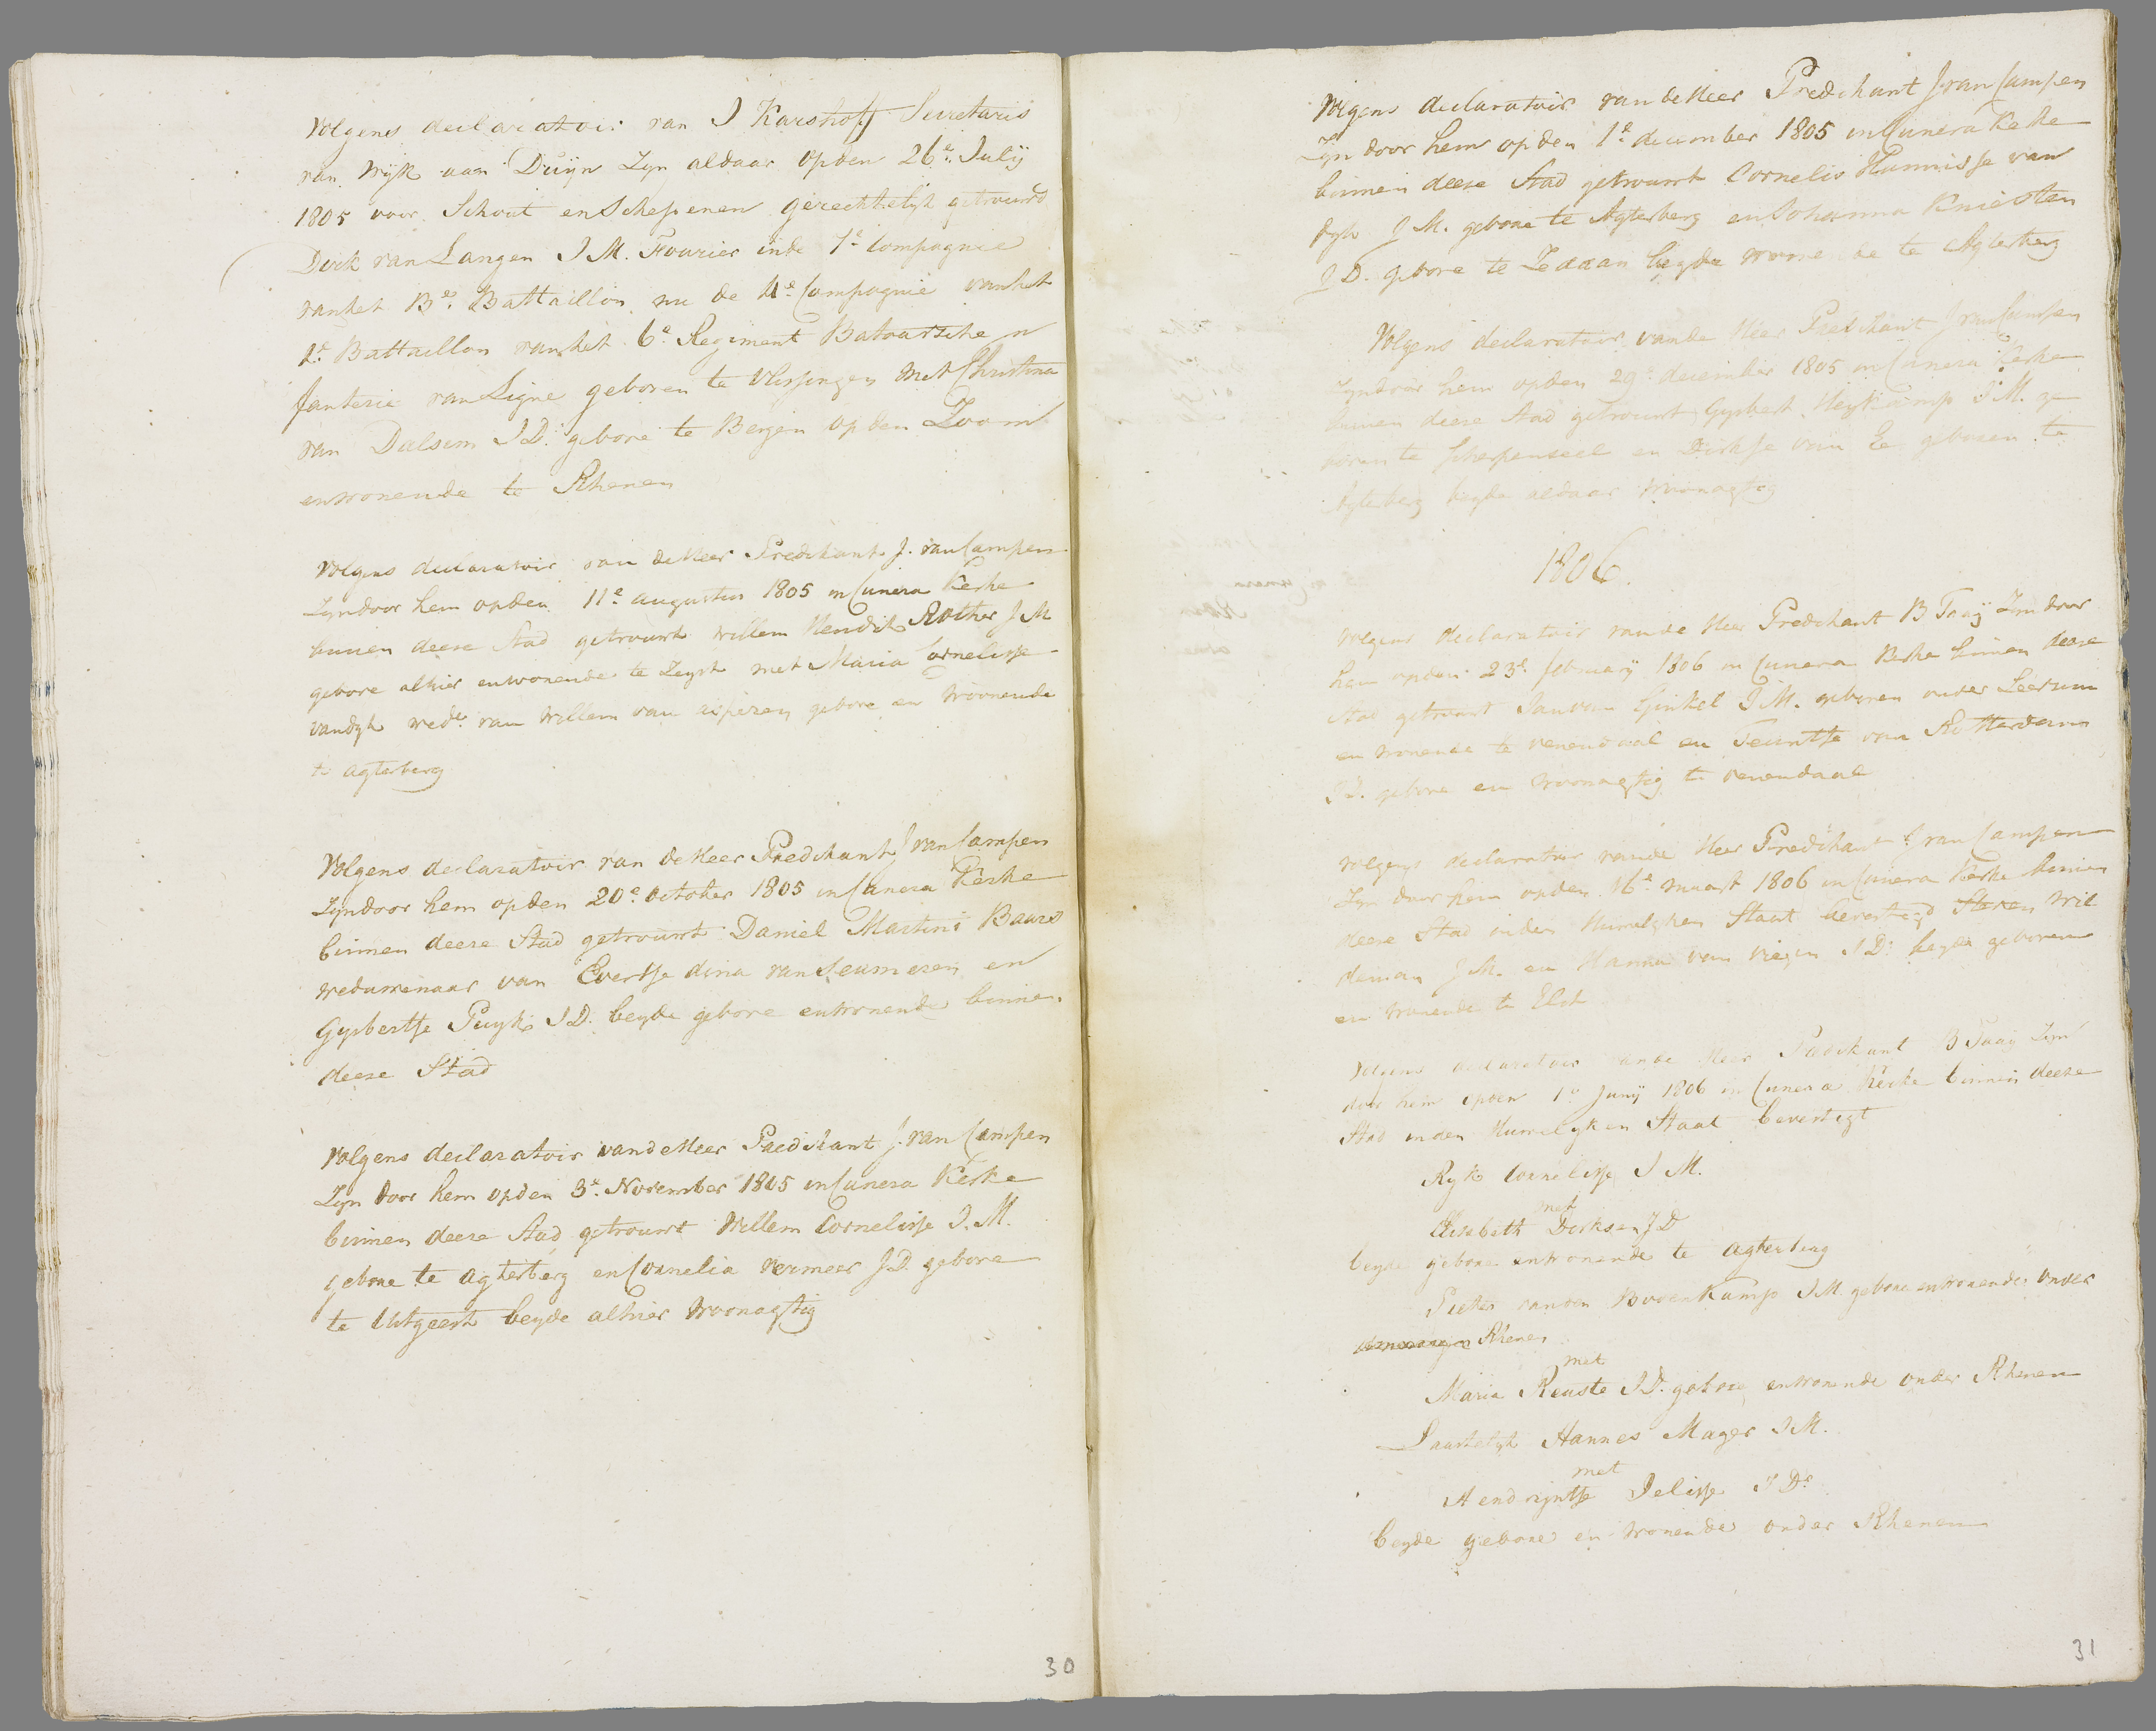 Volgens declaratoir van J Karshoff Secretaris
van Wijk aan Duijn Zyn aldaar op den 26e. Julij
1805 voor Schout en Schepenen gerechtelyk getrouwd
Dirk van Langen J M. Fourier inde 7e Compagnie
van het Be. Battaillon nu de 4e Compagnie van het
2e. Battaillon van het 6e. Regiment Bataafsche n
fanterie van Ligne geboren te Vlissingen met Christina
van Dalsem J D. gebore te Bergen op den Zoom
en wonende te Rhenen
Volgens declaratoir van de Heer Predikant J. van Campen
Zyn door hem op den 11e augustus 1805 in Cunera Kerke
binnen deese Stad getrouwt Willem Hendik Rother J M
gebore alhier en wonende te Zeyst met Maria Cornelisse
van dyk wede. van Willem van asperen gebore en Woonende
te agterberg
Volgens declaratoir van de Heer Predikant J van Campen
Zyn door hem op den 20e October 1805 in Cunera Kerke
binnen deese Stad getrouwt Daniel Martini Baars
weduwenaar van Evertje dina van Seumeren en
Gysbertje Puyk J D. beyde gebore en wonende binnen
deese Stad
Volgens declaratoir van de Heer Predikant J. van Campen
Zyn door hem op den 3e. November 1805 in Cunera Kerke
binnen deese Stad getrouwt Willem Cornelisse J. M.
gebore te agterberg en Cornelia Vermeer J D. gebore
te Uitgeest beyde alhier Woonagtig
30
Volgens declaratoir van de Heer Predikant J. van Campen
Zyn door hem op den 1e december 1805 in Cunera Kerke
binnen deese Stad getrouwt Cornelis Hannisse van
dyk J M. gebore te Agterberg en Johanna Kniesten
J D. gebore te Zeddan beyde wonende te Agterberg
Volgens declaratoir van de Heer Predikant J van Campen
Zyn door hem op den 29e december 1805 in Cunera Kerke
binnen deese Stad getrouwt Gysbert Heykamp J M. ge
boren te Scherpenseel en Dirkje van Ee geboren te
Agterberg beyde aldaar Woonagtig
1806.
Volgens declaratoir van de Heer Predikant B Taaij Zyn door
hem op den 23e february 1806 in Cunera Kerke binnen deese
Stad getrouwt Jan van Ginkel J M. geboren onder Leersum
en wonende te venendaal en Teuntje van Rotterdam
J D. gebore en woonagtig te venendaal
volgens declaratoir van de Heer Predikant J van Campen
Zyn door hem op den 16e maart 1806 in Cunera Kerke binnen
deese Stad in den Huwelyken Staat bevestigd Steven Wil
deman J M. en Hanna van viegen J D. beyde geboren
en wonende te Elst
Volgens declaratoir van de Heer Predikant B Taaij Zyn
door hem op den 1e Junij 1806 in Cunera Kerke binnen deese
Stad in den Huwelyken Staat bevestigt
Ryk Cornelisse J M.
met
Elisabeth Dirksen J D
beyde gebore en wonende te agterberg
Pieter van den Bovenkamp J M. gebore en wonende onder
Rhenen
met
Maria Reuste J D. gebore en wonende onder Rhenen
Laastelyk Hannes Mager J M.
met
Hendrijntje Jelisse J D.
beyde gebore en wonende onder Rhenen
31